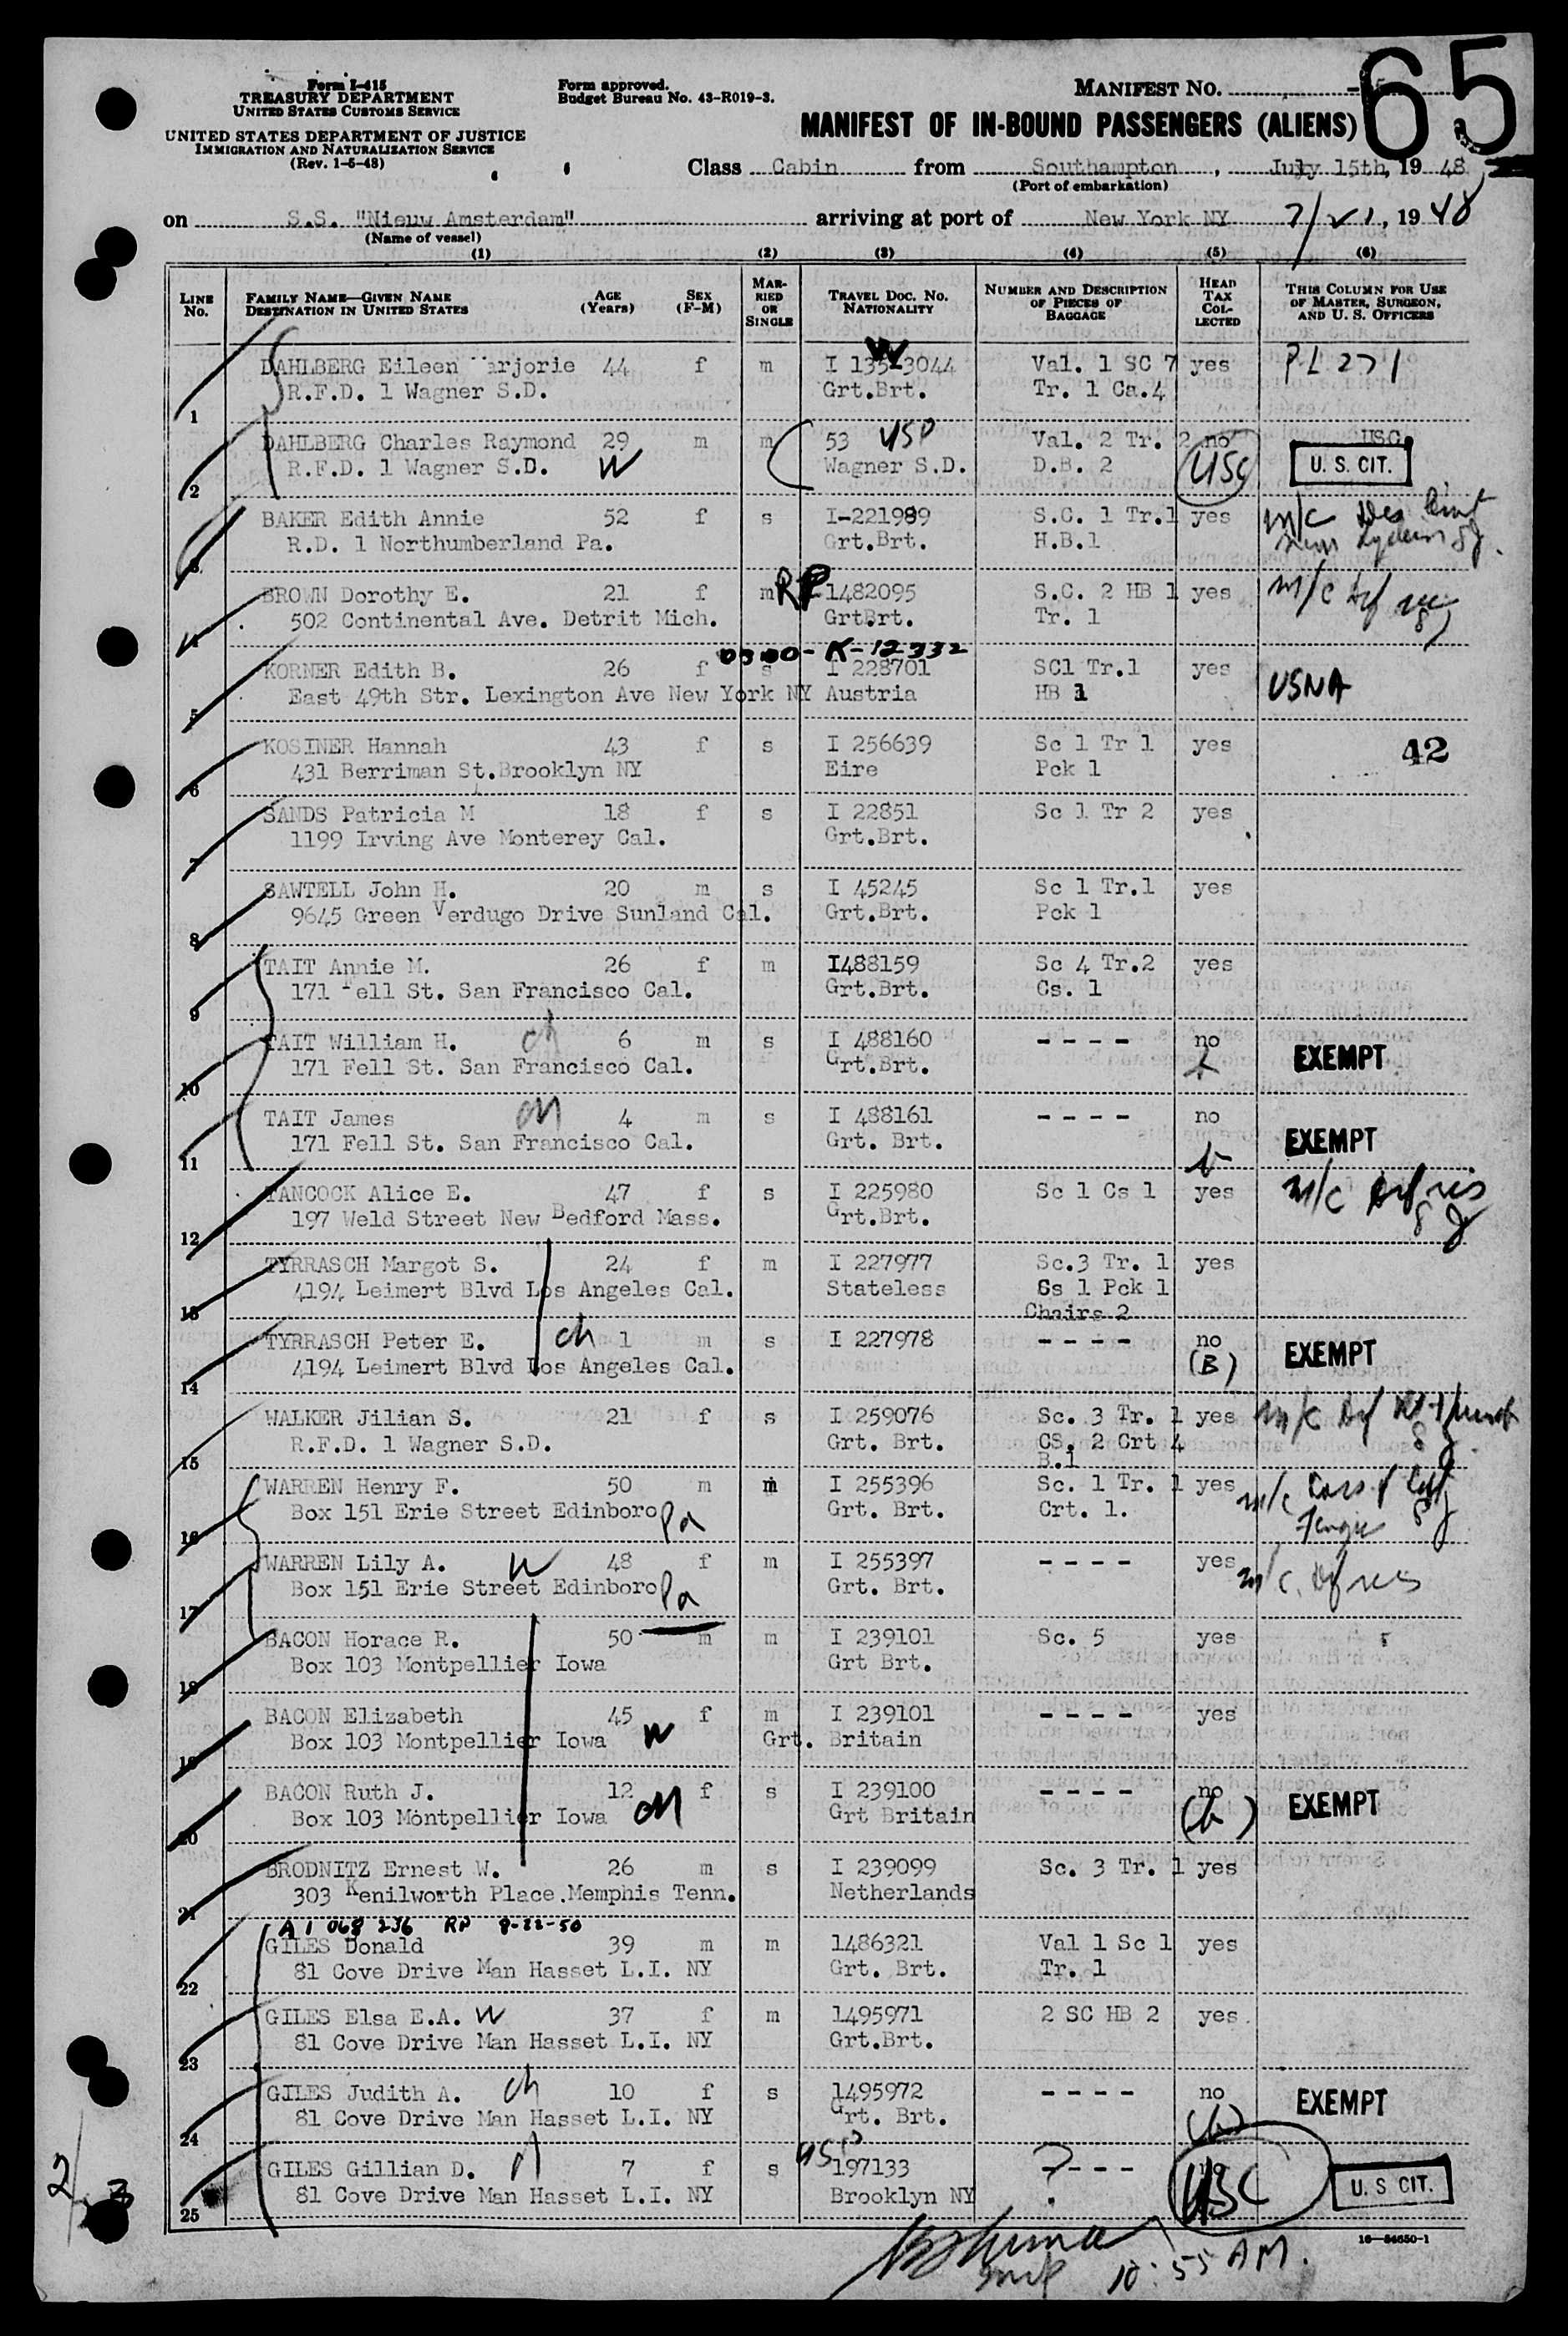 Form I-415
TREASURY DEPARTMENT
UNITED STATES CUSTOMS SERVICE
UNITED STATES DEPARTMENT OF JUSTICE
IMMIGRATION AND NATURALIZATION SERVICE
(Rev. 1-5-48)
Form approved.
Budget Bureau No. 43-R019-3.
MANIFEST NO.
65
MANIFEST OF IN-BOUND PASSENGERS (ALIENS)
Class Cabin from Southampton, July 15th, 19 48
(Port of embarkation)
on S.S. "Nieuw Amsterdam" arriving at port of New York NY 7/21, 19 48
(Name of vessel)
(1) (2) (3) (4) (5) (6)
LINE No. FAMILY NAME—GIVEN NAME DESTINATION IN UNITED STATES AGE (Years) SEX (F-M) MARRIED OR SINGLE TRAVEL DOC. NO. NATIONALITY NUMBER AND DESCRIPTION OF PIECES OF BAGGAGE HEAD TAX COLLECTED THIS COLUMN FOR USE OF MASTER, SURGEON, AND U. S. OFFICERS
W
DAHLBERG Eileen Marjorie 44 f m I 135-3044 Val. 1 SC 7 yes PL 271
R.F.D. 1 Wagner S.D. Grt.Brt. Tr. 1 Ca.4
1
DAHLBERG Charles Raymond 29 m m 53 USP Val. 2 Tr. 2 no USC
R.F.D. 1 Wagner S.D. W Wagner S.D. D.B. 2 USC U. S. CIT.
2
BAKER Edith Annie 52 f s I-221989 S.C. 1 Tr.1 yes m/c
R.D. 1 Northumberland Pa. Grt.Brt. H.B.1
3
BROWN Dorothy E. 21 f m RP 1482095 S.C. 2 HB 1 yes m/c
502 Continental Ave. Detrit Mich. GrtBrt. Tr. 1
4
0300-K-12332
KORNER Edith B. 26 f s I 228701 SC1 Tr.1 yes USNA
East 49th Str. Lexington Ave New York NY Austria HB 1
5
KOSINER Hannah 43 f s I 256639 Sc 1 Tr 1 yes 42
431 Berriman St.Brooklyn NY Eire Pck 1
6
SANDS Patricia M 18 f s I 22851 Sc 1 Tr 2 yes
1199 Irving Ave Monterey Cal. Grt.Brt.
7
SAWTELL John H. 20 m s I 45245 Sc 1 Tr.1 yes
9645 Green Verdugo Drive Sunland Cal. Grt.Brt. Pck 1
8
TAIT Annie M. 26 f m I488159 Sc 4 Tr.2 yes
171 Fell St. San Francisco Cal. Grt.Brt. Cs. 1
9
TAIT William H. ch 6 m s I 488160 - - - - no EXEMPT
171 Fell St. San Francisco Cal. Grt.Brt.
10
TAIT James ch 4 m s I 488161 - - - - no EXEMPT
171 Fell St. San Francisco Cal. Grt. Brt. b
11
TANCOCK Alice E. 47 f s I 225980 Sc 1 Cs 1 yes m/c
197 Weld Street New Bedford Mass. Grt.Brt.
12
TYRRASCH Margot S. 24 f m I 227977 Sc.3 Tr. 1 yes
4194 Leimert Blvd Los Angeles Cal. Stateless Cs 1 Pck 1
Chairs 2
13
TYRRASCH Peter E. ch 1 m s I 227978 - - - - no EXEMPT
4194 Leimert Blvd Los Angeles Cal. (B)
14
WALKER Jilian S. 21 f s I 259076 Sc. 3 Tr. 1 yes m/c
R.F.D. 1 Wagner S.D. Grt. Brt. CS. 2 Crt 4
B.1
15
WARREN Henry F. 50 m m I 255396 Sc. 1 Tr. 1 yes m/c
Box 151 Erie Street Edinboro Pa Grt. Brt. Crt. 1.
16
WARREN Lily A. W 48 f m I 255397 - - - - yes m/c
Box 151 Erie Street Edinboro Pa Grt. Brt.
17
BACON Horace R. 50 m m I 239101 Sc. 5 yes
Box 103 Montpellier Iowa Grt Brt.
18
BACON Elizabeth 45 f m I 239101 - - - - yes
Box 103 Montpellier Iowa W Grt. Britain
19
BACON Ruth J. 12 f s I 239100 - - - - no EXEMPT
Box 103 Montpellier Iowa ch Grt Britain (b)
20
BRODNITZ Ernest W. 26 m s I 239099 Sc. 3 Tr. 1 yes
303 Kenilworth Place.Memphis Tenn. Netherlands
21
A1 068 236 RP 8-22-50
GILES Donald 39 m m 1486321 Val 1 Sc 1 yes
81 Cove Drive Man Hasset L.I. NY Grt. Brt. Tr. 1
22
GILES Elsa E.A. W 37 f m 1495971 2 SC HB 2 yes
81 Cove Drive Man Hasset L.I. NY Grt.Brt.
23
GILES Judith A. ch 10 f s 1495972 - - - - no EXEMPT
81 Cove Drive Man Hasset L.I. NY Grt. Brt. (b)
24
USP
GILES Gillian D. 7 f s 197133 ? - - - - USC U. S. CIT.
81 Cove Drive Man Hasset L.I. NY Brooklyn NY
25
16—54650-1
10:55 AM.